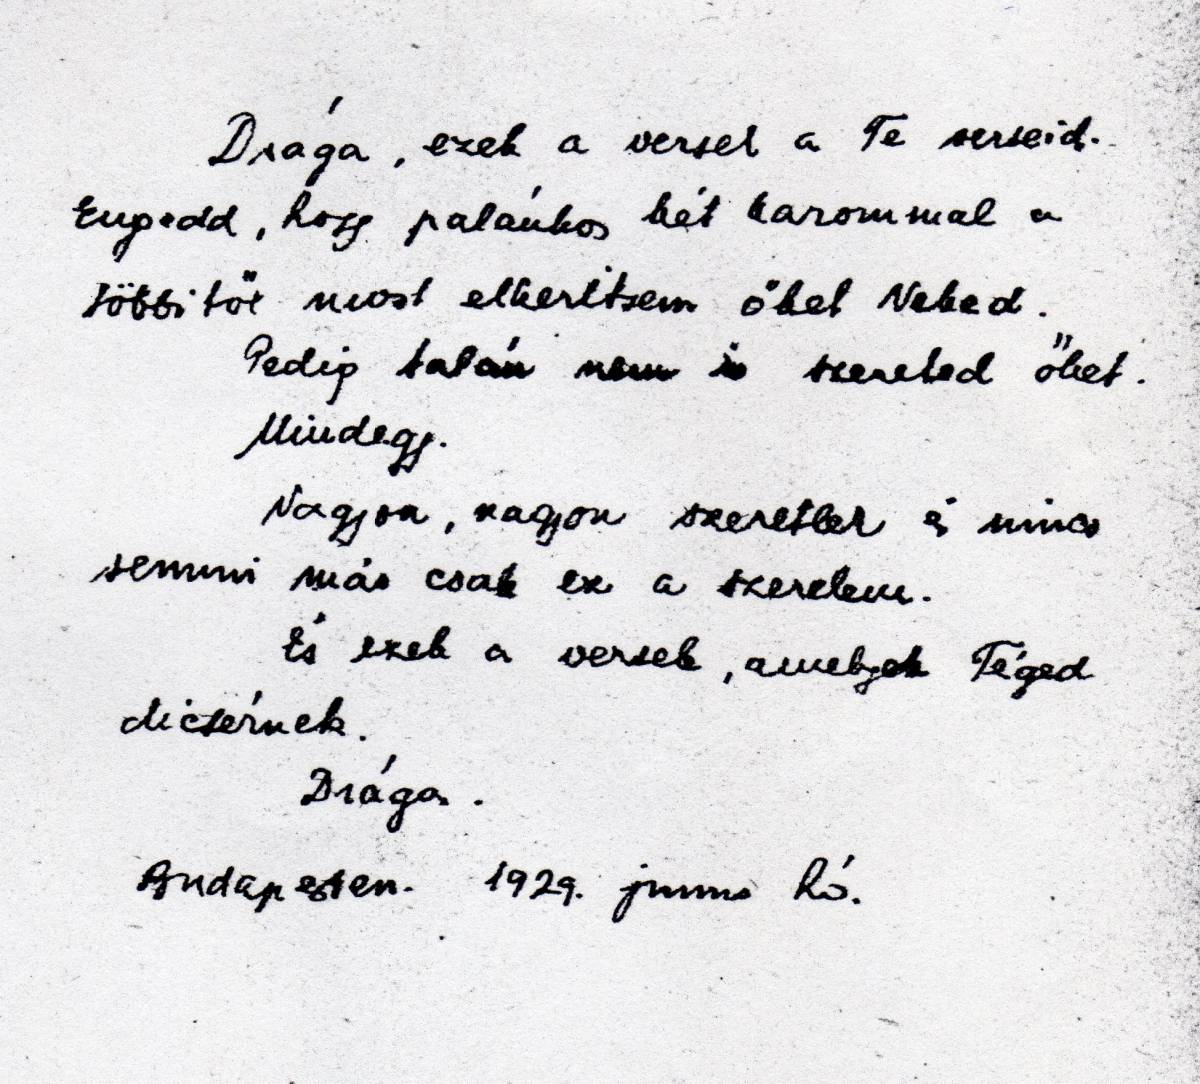 Drága, ezek a versek a Te verseid.
Engedd, hogy palánkos két karommal a
többitől most elkerítsem őket Neked.
Pedig talán nem is szereted őket.
Mindegy.
Nagyon, nagyon szeretlek és nincs
semmi más csak ez a szerelem.
És ezek a versek, amelyek Téged
dicsérnek.
Drága.
Budapesten. 1929. junius hó.